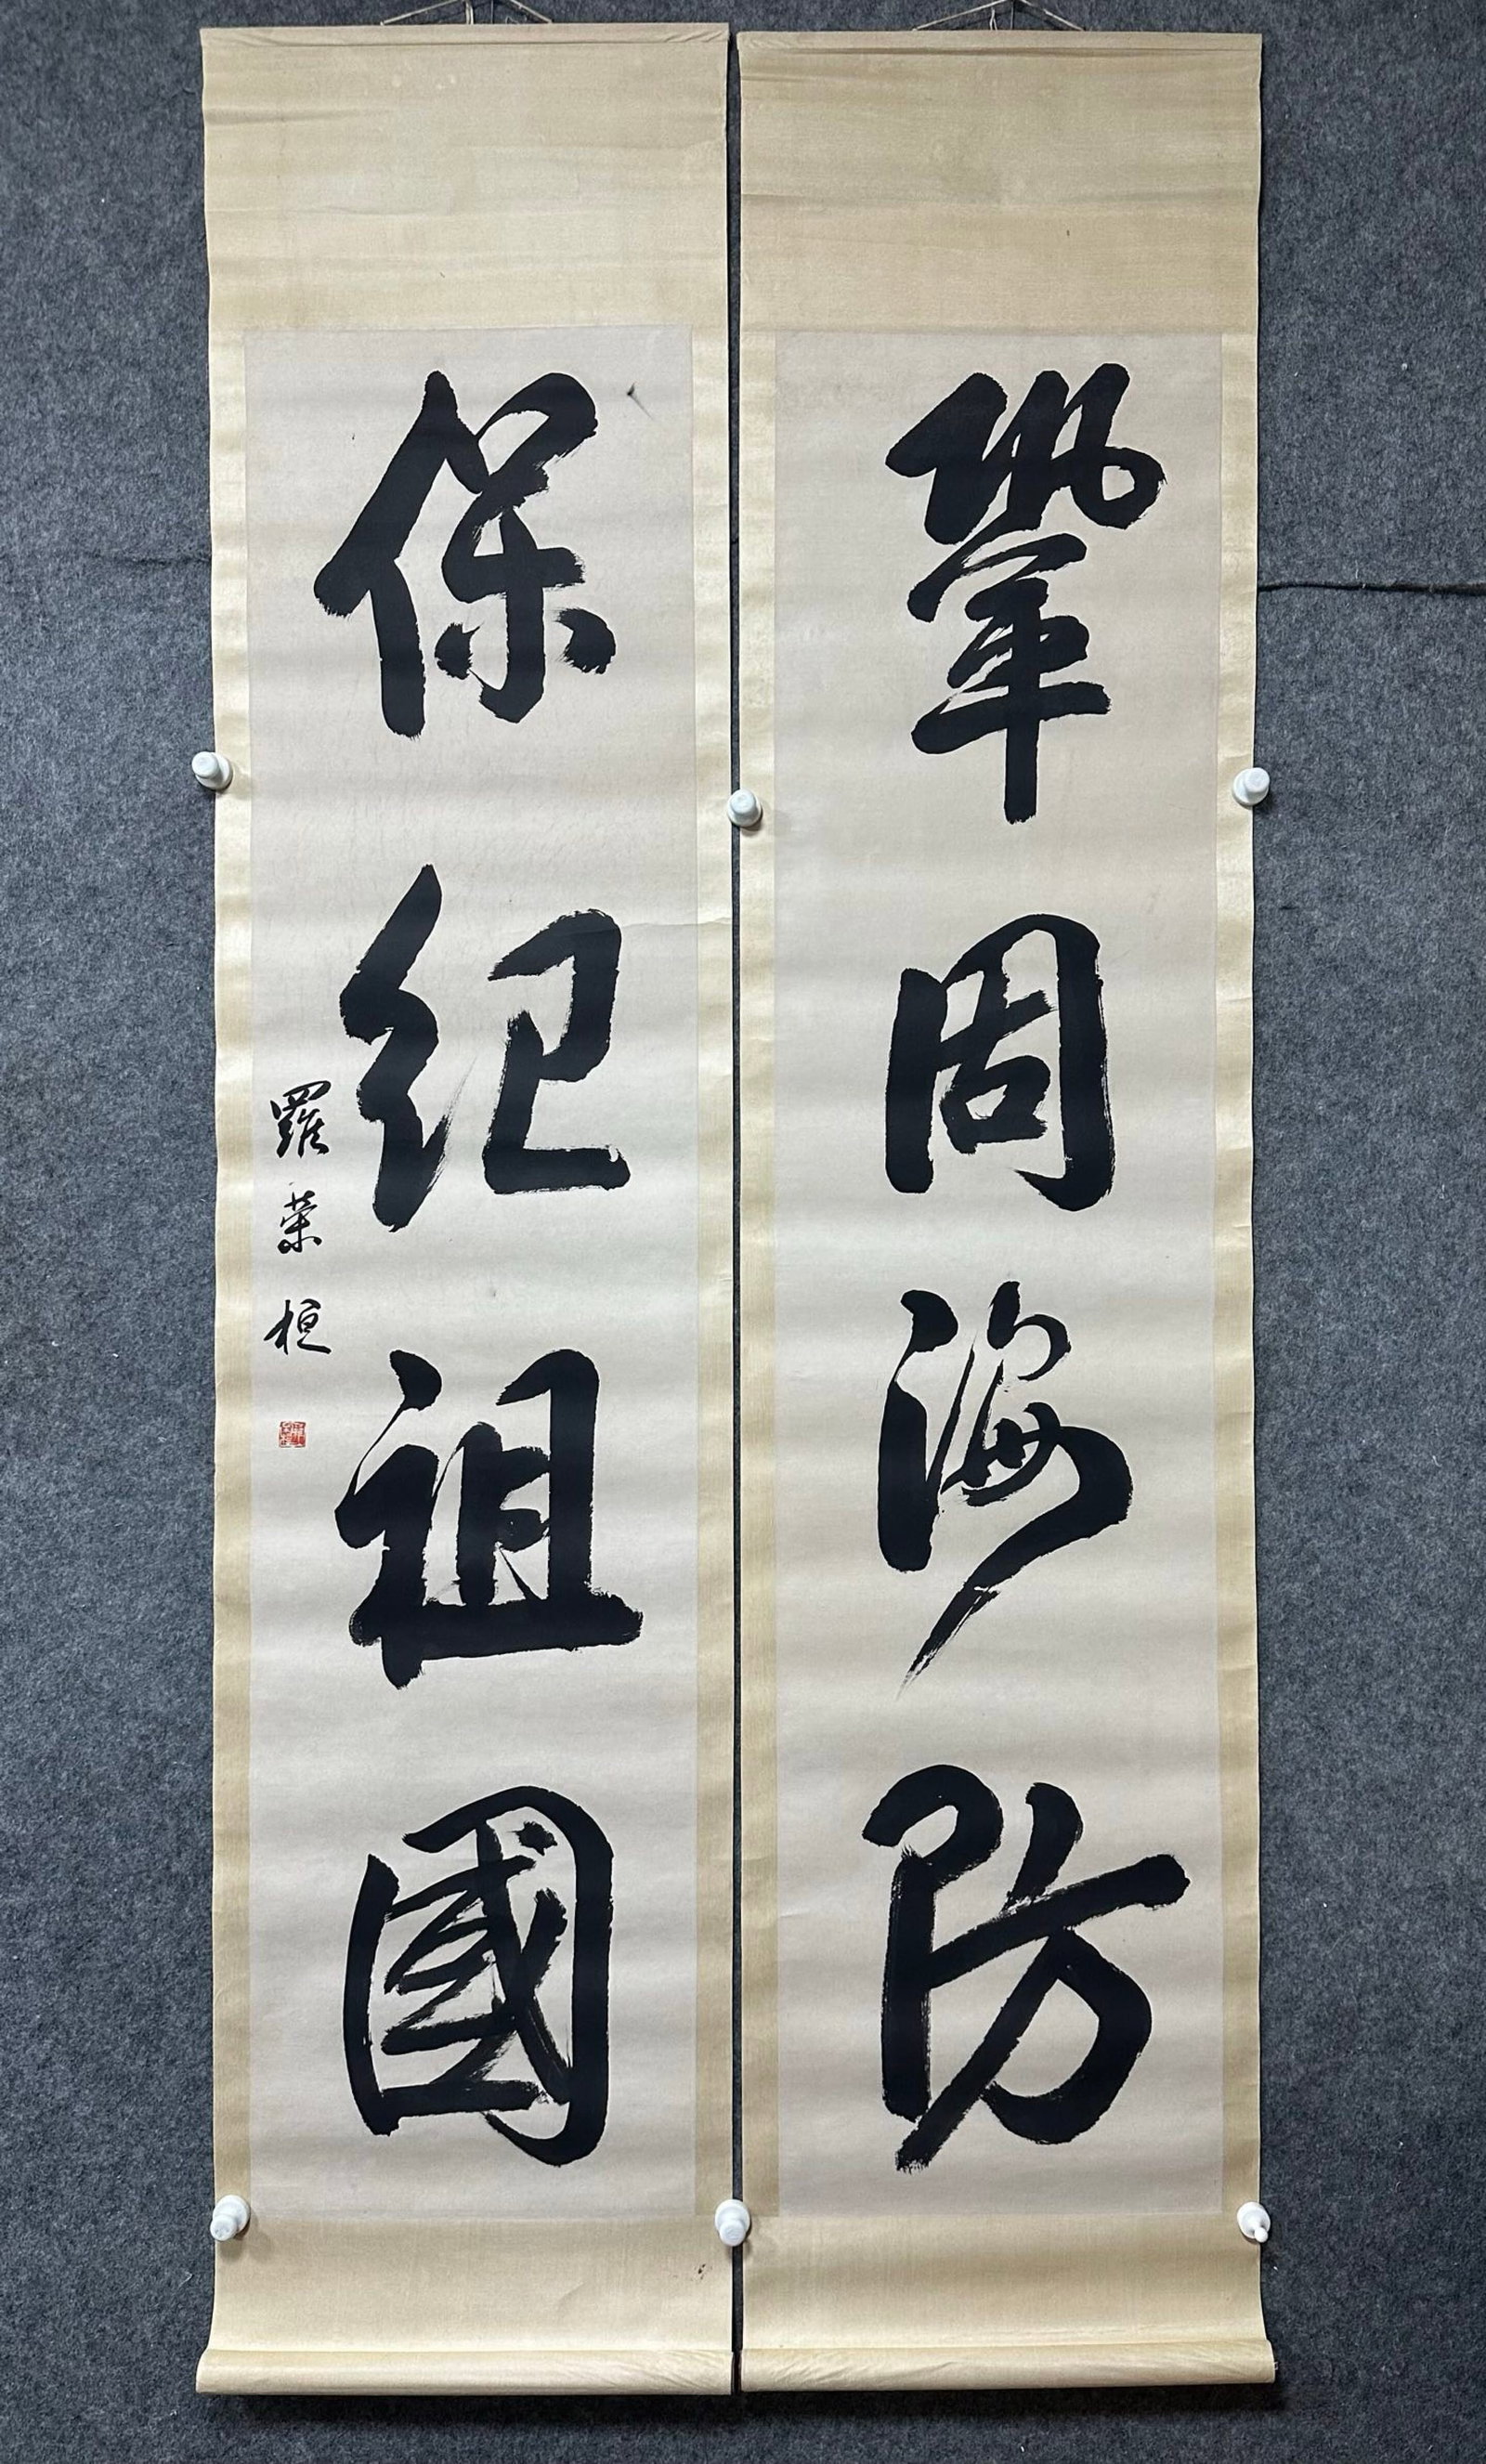 鞏固海防
保纪祖國
羅荣桓